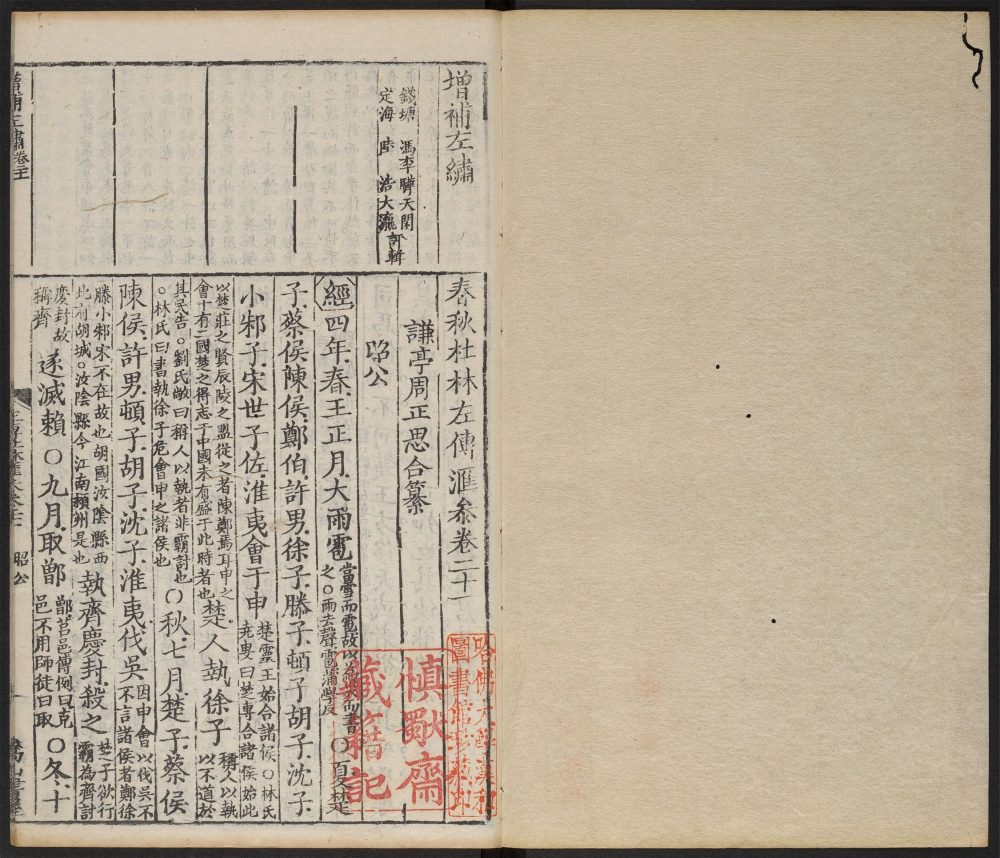 增補左繡
錢塘 馮李驊天閑
定海 陸 浩大瀛 評輯
春秋杜林左傳滙叅卷二十
謙亭周正思合纂
昭公
經四年春王正月大雨雹當雪而雹故以為災而書之〇雨去聲雹蒲學反〇夏楚
子蔡侯陳侯鄭伯許男徐子滕子頓子胡子沈子
小邾子宋世子佐淮夷會于申楚靈王始合諸侯〇林氏堯叟曰楚專合諸侯始此
以楚莊之賢辰陵之盟從之者陳鄭焉耳申之會十有二國楚之得志于中國未有盛于此時者也楚人執徐子稱人以執以不道於
其民告〇劉氏敞曰稱人以執者非霸討也〇林氏曰書執徐子危會申之諸侯也〇秋七月楚子蔡侯
陳侯許男頓子胡子沈子淮夷伐吳因申會以伐吳不言諸侯者鄭徐
滕小邾宋不在故也胡國汝陰縣西北有胡城〇汝陰縣今江南頴州是也執齊慶封殺之楚子欲行霸為齊討
慶封故稱齊遂滅賴〇九月取鄫鄫莒邑傳例曰克邑不用師徒曰取〇冬十
昭公
哈佛大學漢和圖書館珍藏印
慎獸齋
藏籍記